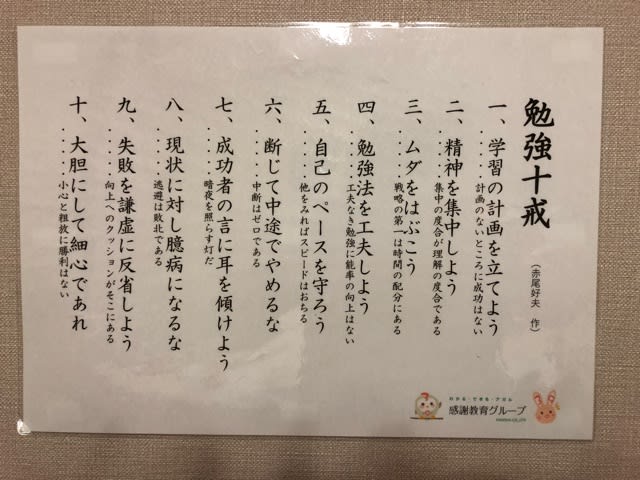 勉強十戒
（赤尾好夫 作）
一、学習の計画を立てよう
・・・・計画のないところに成功はない
二、精神を集中しよう
・・・・集中の度合が理解の度合である
三、ムダをはぶこう
・・・・戦略の第一は時間の配分にある
四、勉強法を工夫しよう
・・・・工夫なき勉強に能率の向上はない
五、自己のペースを守ろう
・・・・他をみればスピードはおちる
六、断じて中途でやめるな
・・・・中断はゼロである
七、成功者の言に耳を傾けよう
・・・・暗夜を照らす灯だ
八、現状に対し臆病になるな
・・・・逃避は敗北である
九、失敗を謙虚に反省しよう
・・・・向上へのクッションがそこにある
十、大胆にして細心であれ
・・・・小心と粗放に勝利はない
わかる・できる・クガル
感謝教育グループ